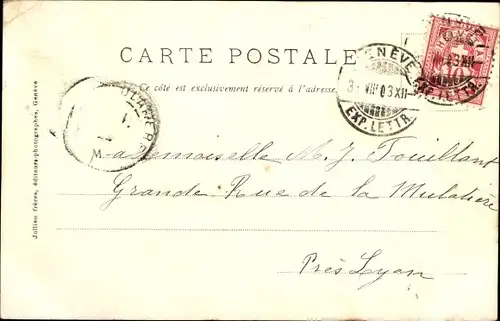 CARTE POSTALE
Ce côté est exclusivement réservé à l'adresse.
GENÈVE
3. VII 03 XII
EXP. LETTR.
Mademoiselle M. J. Touillant
Grande Rue de la Mulatière
Près Lyon
Jullien frères, éditeurs-photographes, Genève